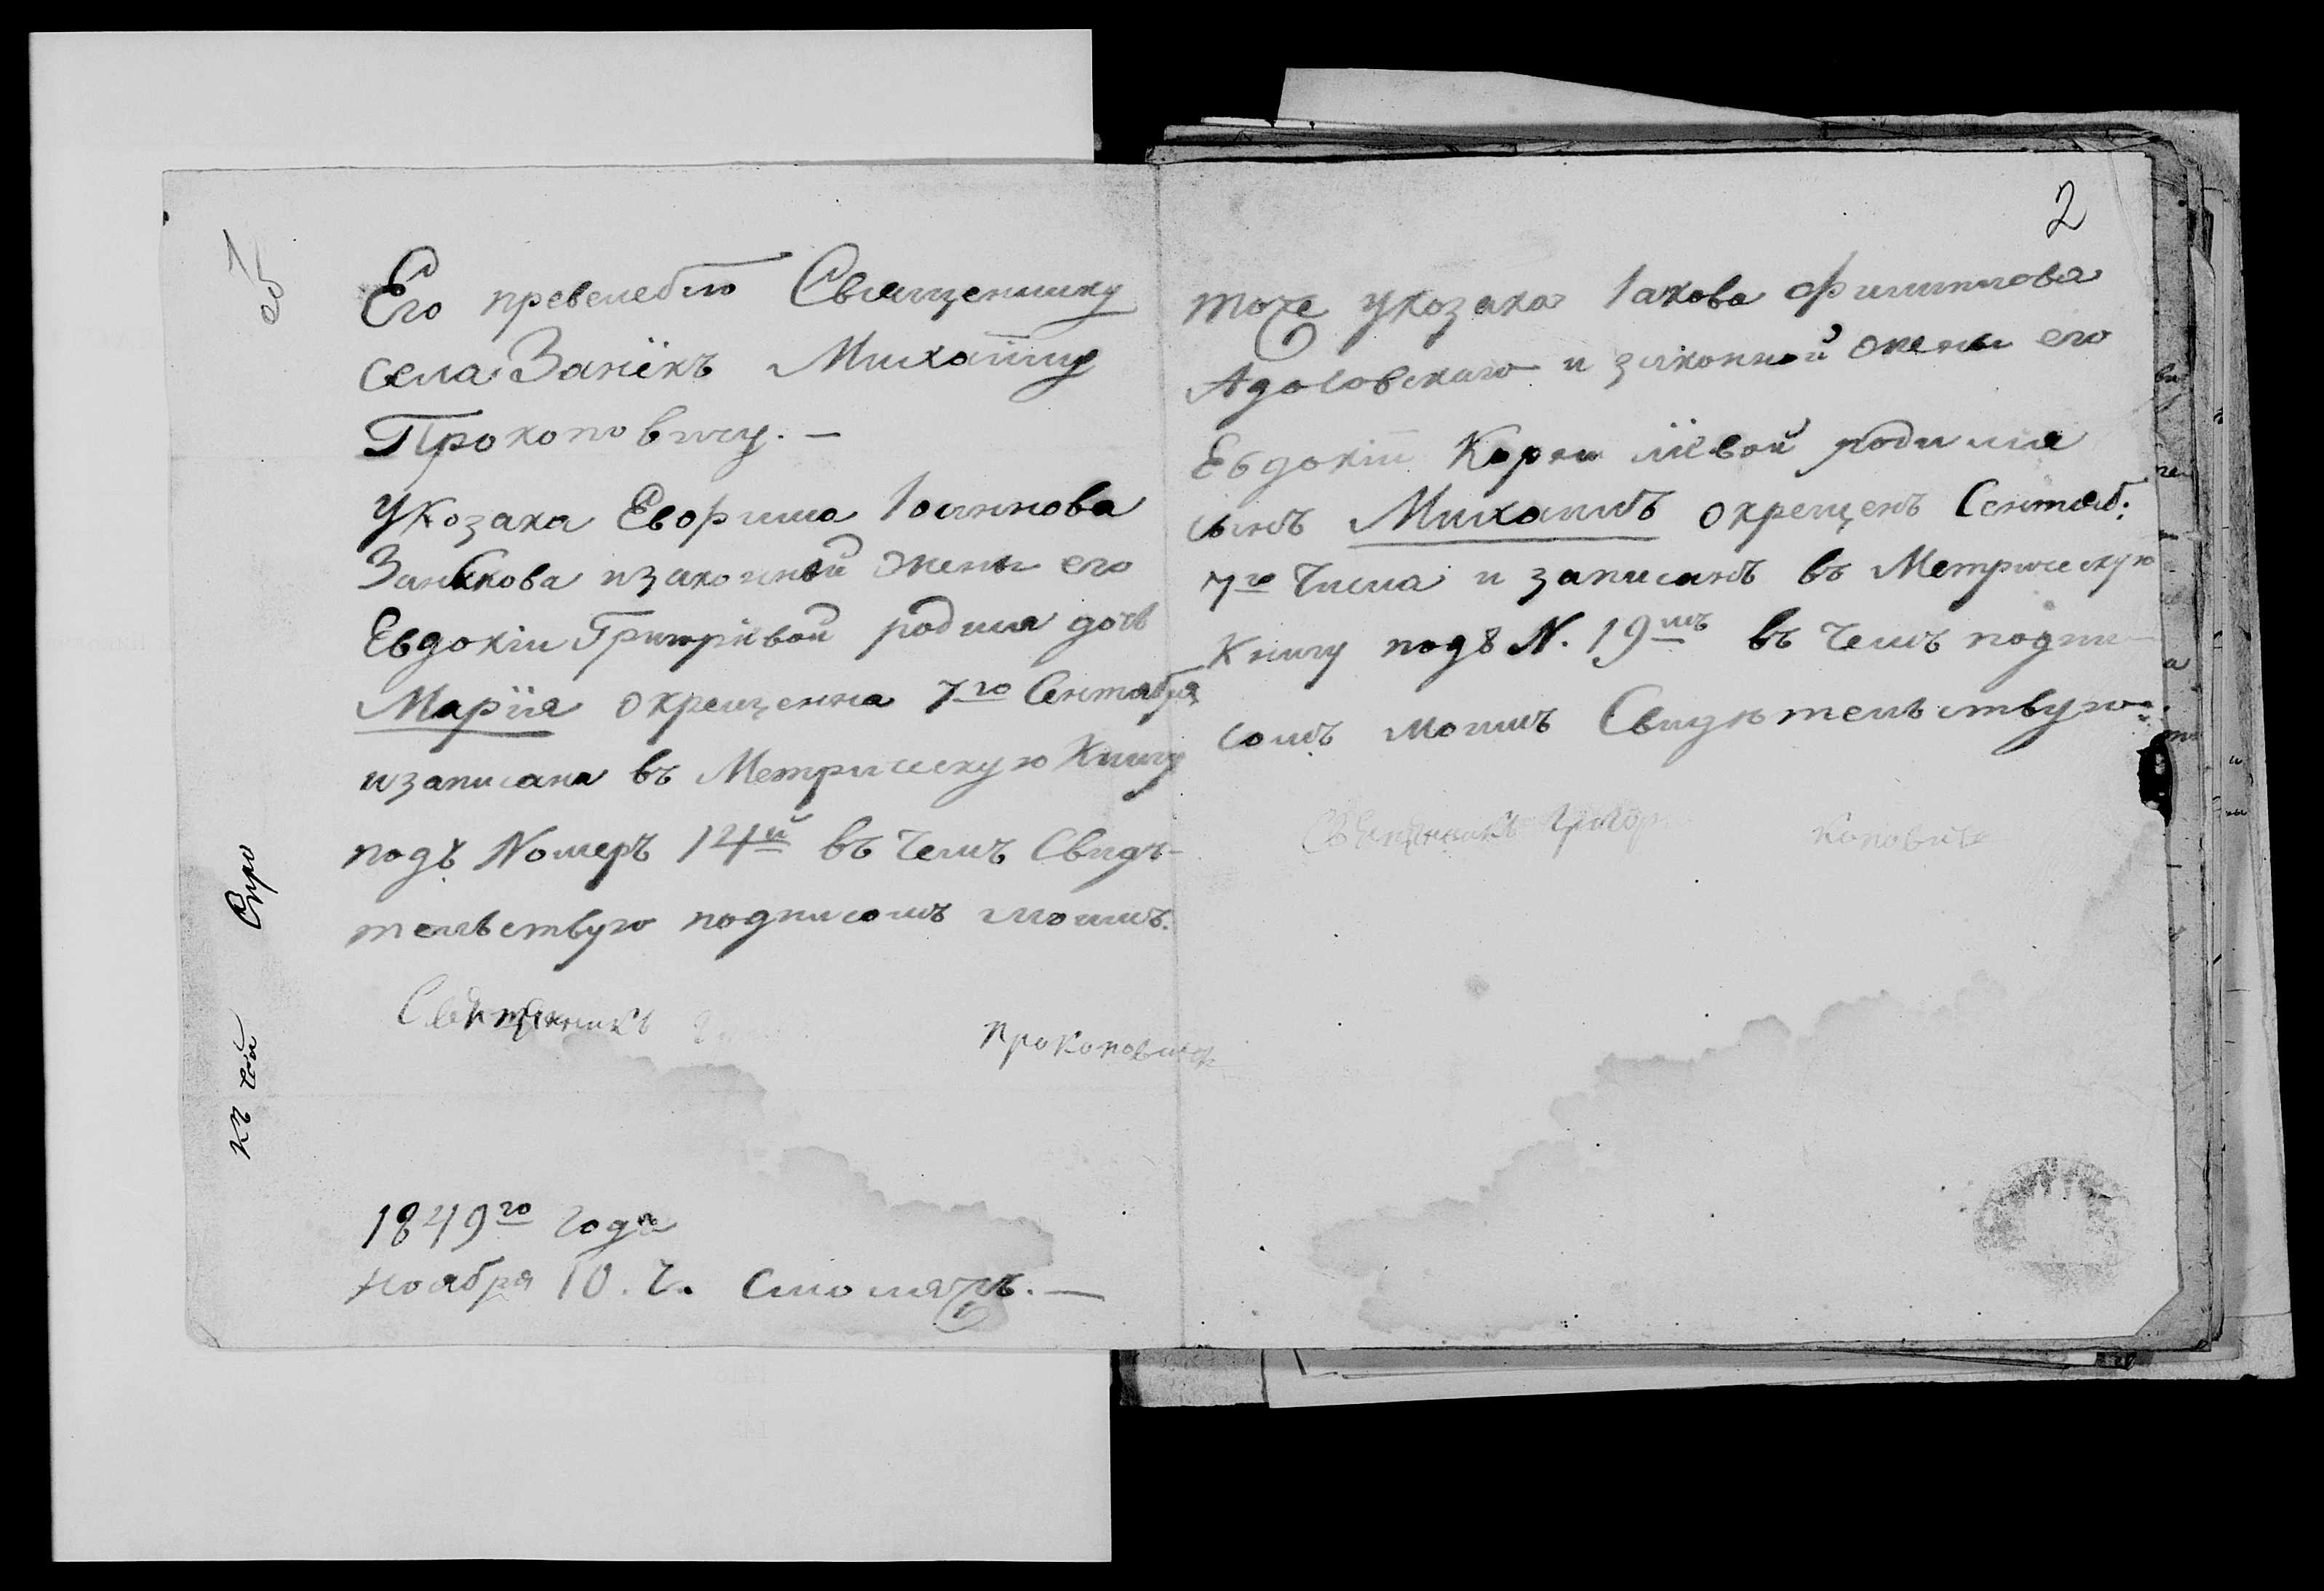 об
Его превелебію Священнику
села Занёкъ Михаилу
Прокоповичу. —
У Козака Евфима Іоаннова
Занькова изаконной жены его
Евдокіи Григорїевой родила дочь
Марїя окрещенна 7го Сентября
изаписана въ Метрическую Книгу
подъ Номеръ 14й въ чемъ Свидѣ-
тельствую подписомъ моимъ.
Священникъ Прокоповичь
1849го года
ноября 10. ч. Столяжъ. —
2
тоже укозака Іакова Филиппова
и законной жены его
Евдокіи родился
сынъ Михаилъ окрещенъ Сентяб:
7го Числа и записанъ въ Метрическую
Книгу подъ N. 19мъ въ чемъ подпи-
сомъ моимъ Свидѣтельствую.
Священникъ Григор коповичь